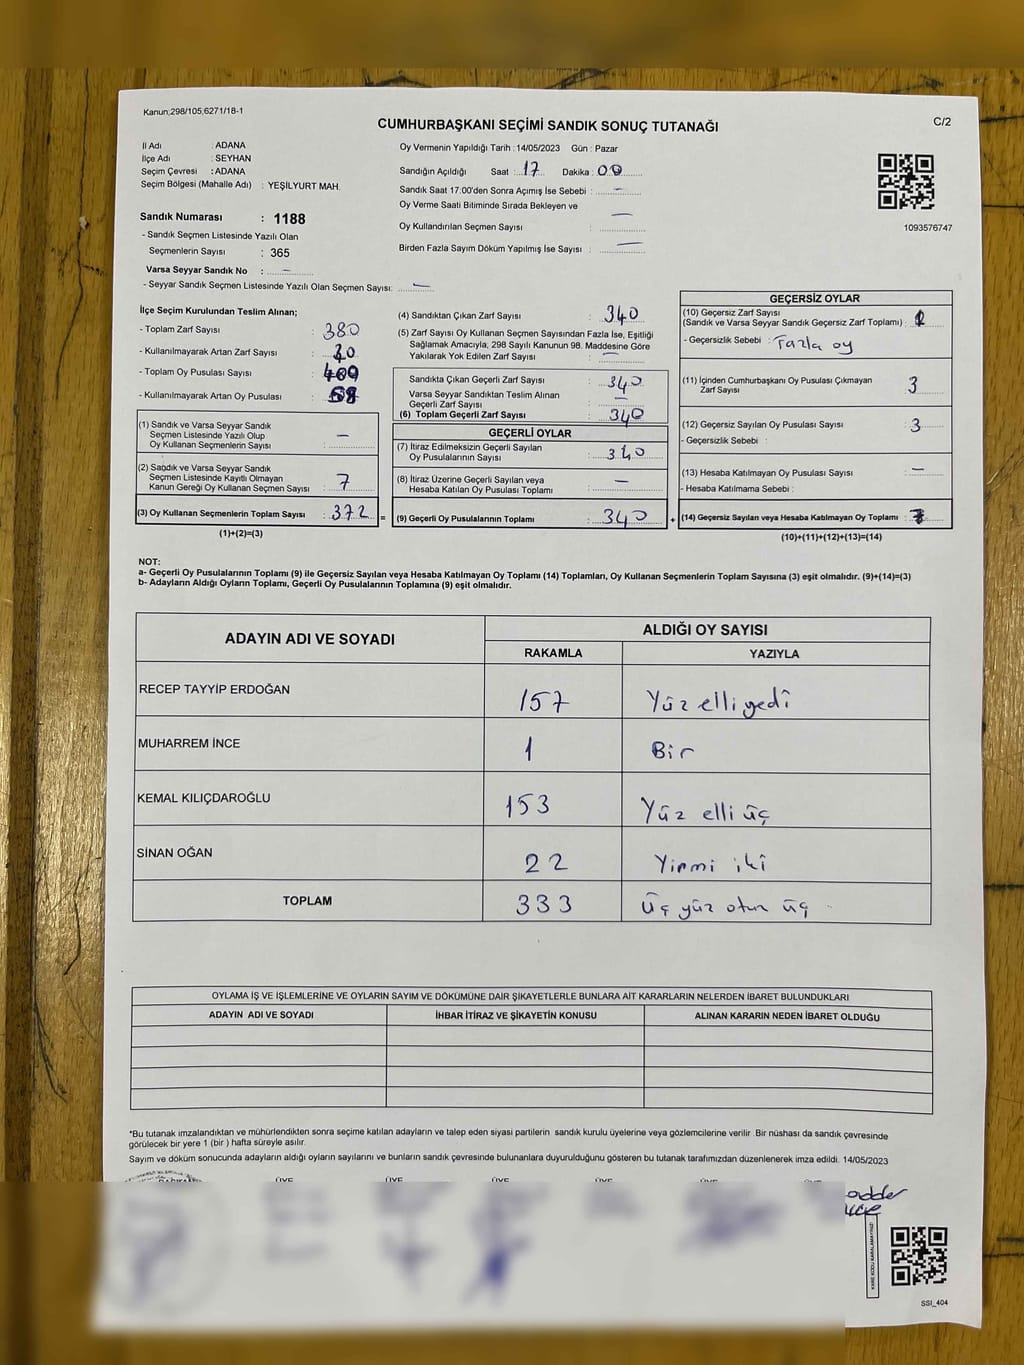 Kanun;298/105,6271/18-1
CUMHURBAŞKANI SEÇİMİ SANDIK SONUÇ TUTANAĞI
C/2
İl Adı : ADANA
İlçe Adı : SEYHAN
Seçim Çevresi : ADANA
Seçim Bölgesi (Mahalle Adı) : YEŞİLYURT MAH.
Sandık Numarası : 1188
- Sandık Seçmen Listesinde Yazılı Olan
Seçmenlerin Sayısı : 365
Varsa Seyyar Sandık No : –
- Seyyar Sandık Seçmen Listesinde Yazılı Olan Seçmen Sayısı: –
Oy Vermenin Yapıldığı Tarih : 14/05/2023 Gün : Pazar
Sandığın Açıldığı Saat : 17 Dakika : 00
Sandık Saat 17:00'den Sonra Açımış İse Sebebi : –
Oy Verme Saati Bitiminde Sırada Bekleyen ve
Oy Kullandırılan Seçmen Sayısı : –
Birden Fazla Sayım Döküm Yapılmış İse Sayısı : –
1093576747
İlçe Seçim Kurulundan Teslim Alınan;
- Toplam Zarf Sayısı : 380
- Kullanılmayarak Artan Zarf Sayısı :
- Toplam Oy Pusulası Sayısı :
- Kullanılmayarak Artan Oy Pusulası :
(1) Sandık ve Varsa Seyyar Sandık
Seçmen Listesinde Yazılı Olup
Oy Kullanan Seçmenlerin Sayısı : –
(2) Sandık ve Varsa Seyyar Sandık
Seçmen Listesinde Kayıtlı Olmayan
Kanun Gereği Oy Kullanan Seçmen Sayısı : 7
(3) Oy Kullanan Seçmenlerin Toplam Sayısı : 372 =
(1)+(2)=(3)
(4) Sandıktan Çıkan Zarf Sayısı : 340
(5) Zarf Sayısı Oy Kullanan Seçmen Sayısından Fazla İse, Eşitliği
Sağlamak Amacıyla, 298 Sayılı Kanunun 98. Maddesine Göre
Yakılarak Yok Edilen Zarf Sayısı : –
Sandıkta Çıkan Geçerli Zarf Sayısı : 340
Varsa Seyyar Sandıktan Teslim Alınan
Geçerli Zarf Sayısı : –
(6) Toplam Geçerli Zarf Sayısı : 340
GEÇERLİ OYLAR
(7) İtiraz Edilmeksizin Geçerli Sayılan
Oy Pusulalarının Sayısı : 340
(8) İtiraz Üzerine Geçerli Sayılan veya
Hesaba Katılan Oy Pusulası Toplamı : –
(9) Geçerli Oy Pusulalarının Toplamı : 340 +
GEÇERSİZ OYLAR
(10) Geçersiz Zarf Sayısı
(Sandık ve Varsa Seyyar Sandık Geçersiz Zarf Toplamı) :
- Geçersizlik Sebebi : Fazla oy
(11) İçinden Cumhurbaşkanı Oy Pusulası Çıkmayan
Zarf Sayısı : 3
(12) Geçersiz Sayılan Oy Pusulası Sayısı : 3
- Geçersizlik Sebebi :
(13) Hesaba Katılmayan Oy Pusulası Sayısı : –
- Hesaba Katılmama Sebebi :
(14) Geçersiz Sayılan veya Hesaba Katılmayan Oy Toplamı : 7
(10)+(11)+(12)+(13)=(14)
NOT:
a- Geçerli Oy Pusulalarının Toplamı (9) ile Geçersiz Sayılan veya Hesaba Katılmayan Oy Toplamı (14) Toplamları, Oy Kullanan Seçmenlerin Toplam Sayısına (3) eşit olmalıdır. (9)+(14)=(3)
b- Adayların Aldığı Oyların Toplamı, Geçerli Oy Pusulalarının Toplamına (9) eşit olmalıdır.
ADAYIN ADI VE SOYADI
ALDIĞI OY SAYISI
RAKAMLA YAZIYLA
RECEP TAYYİP ERDOĞAN 157 Yüz elli yedi
MUHARREM İNCE 1 Bir
KEMAL KILIÇDAROĞLU 153 Yüz elli üç
SİNAN OĞAN 22 Yirmi iki
TOPLAM 333 üç yüz otuz üç
OYLAMA İŞ VE İŞLEMLERİNE VE OYLARIN SAYIM VE DÖKÜMÜNE DAİR ŞİKAYETLERLE BUNLARA AİT KARARLARIN NELERDEN İBARET BULUNDUKLARI
ADAYIN ADI VE SOYADI İHBAR İTİRAZ VE ŞİKAYETİN KONUSU ALINAN KARARIN NEDEN İBARET OLDUĞU
*Bu tutanak imzalandıktan ve mühürlendikten sonra seçime katılan adayların ve talep eden siyasi partilerin sandık kurulu üyelerine veya gözlemcilerine verilir. Bir nüshası da sandık çevresinde
görülecek bir yere 1 (bir) hafta süreyle asılır.
Sayım ve döküm sonucunda adayların aldığı oyların sayılarını ve bunların sandık çevresinde bulunanlara duyurulduğunu gösteren bu tutanak tarafımızdan düzenlenerek imza edildi. 14/05/2023
ÜYE ÜYE ÜYE ÜYE ÜYE
KARE KODU KARALAMAYINIZ!
SSI_404